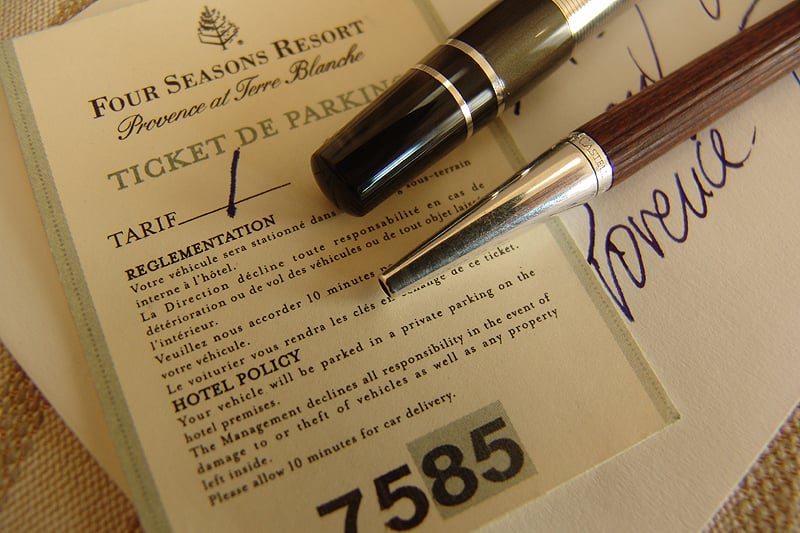 FOUR SEASONS RESORT
Provence at Terre Blanche
TICKET DE PARKING
TARIF
REGLEMENTATION
Votre véhicule sera stationné dans sous-terrain
interne à l'hôtel.
La Direction décline toute responsabilité en cas de
détérioration ou de vol des véhicules ou de tout objet laissé
l'intérieur.
Veuillez nous accorder 10 minutes
votre véhicule.
Le voiturier vous rendra les clés en échange de ce ticket.
HOTEL POLICY
Your vehicle will be parked in a private parking on the
hotel premises.
The Management declines all responsibility in the event of
damage to or theft of vehicles as well as any property
left inside.
Please allow 10 minutes for car delivery.
7585
CASTELL
Provence